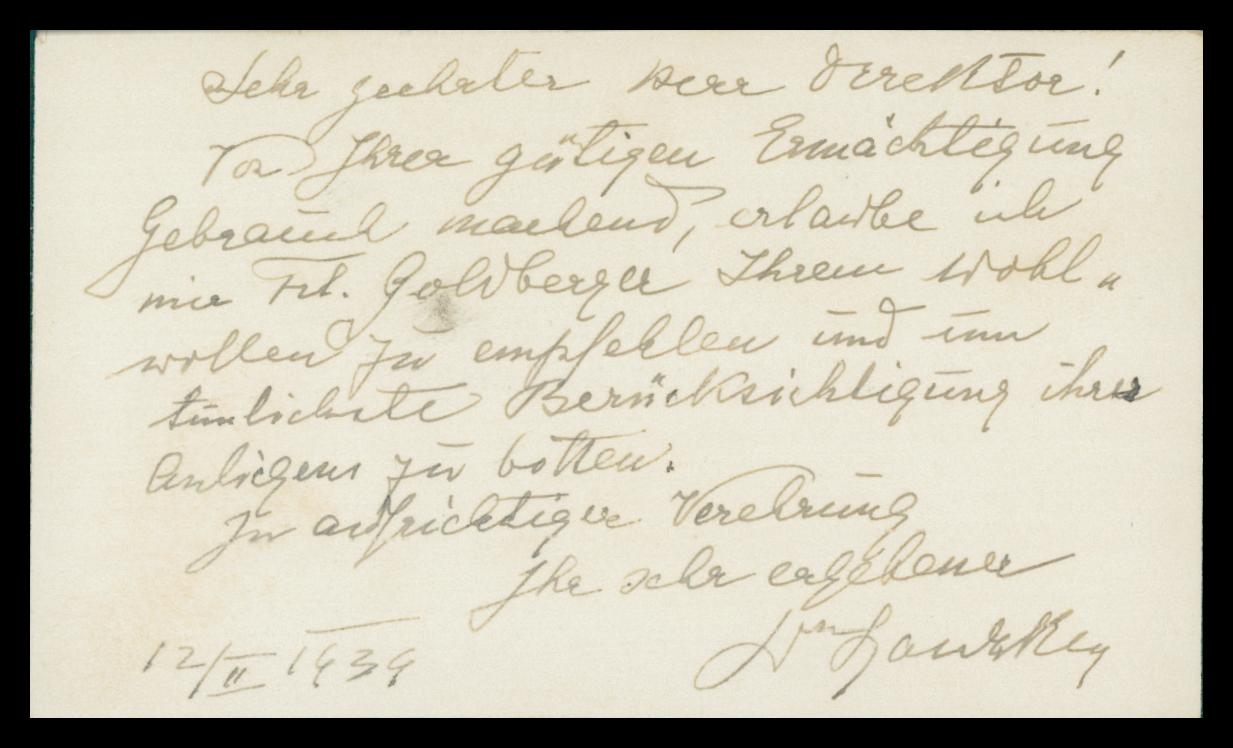 Sehr geehrter Herr Direktor!
Von Ihrer gütigen Ermächtigung
Gebrauch machend, erlaube ich
mir Frl. Goldberger Ihrem Wohl„
wollen zu empfehlen und um
tunlichste Berücksichtigung ihres
Anliegens zu bitten.
In aufrichtiger Verehrung
Ihr sehr ergebener
12/II 1939